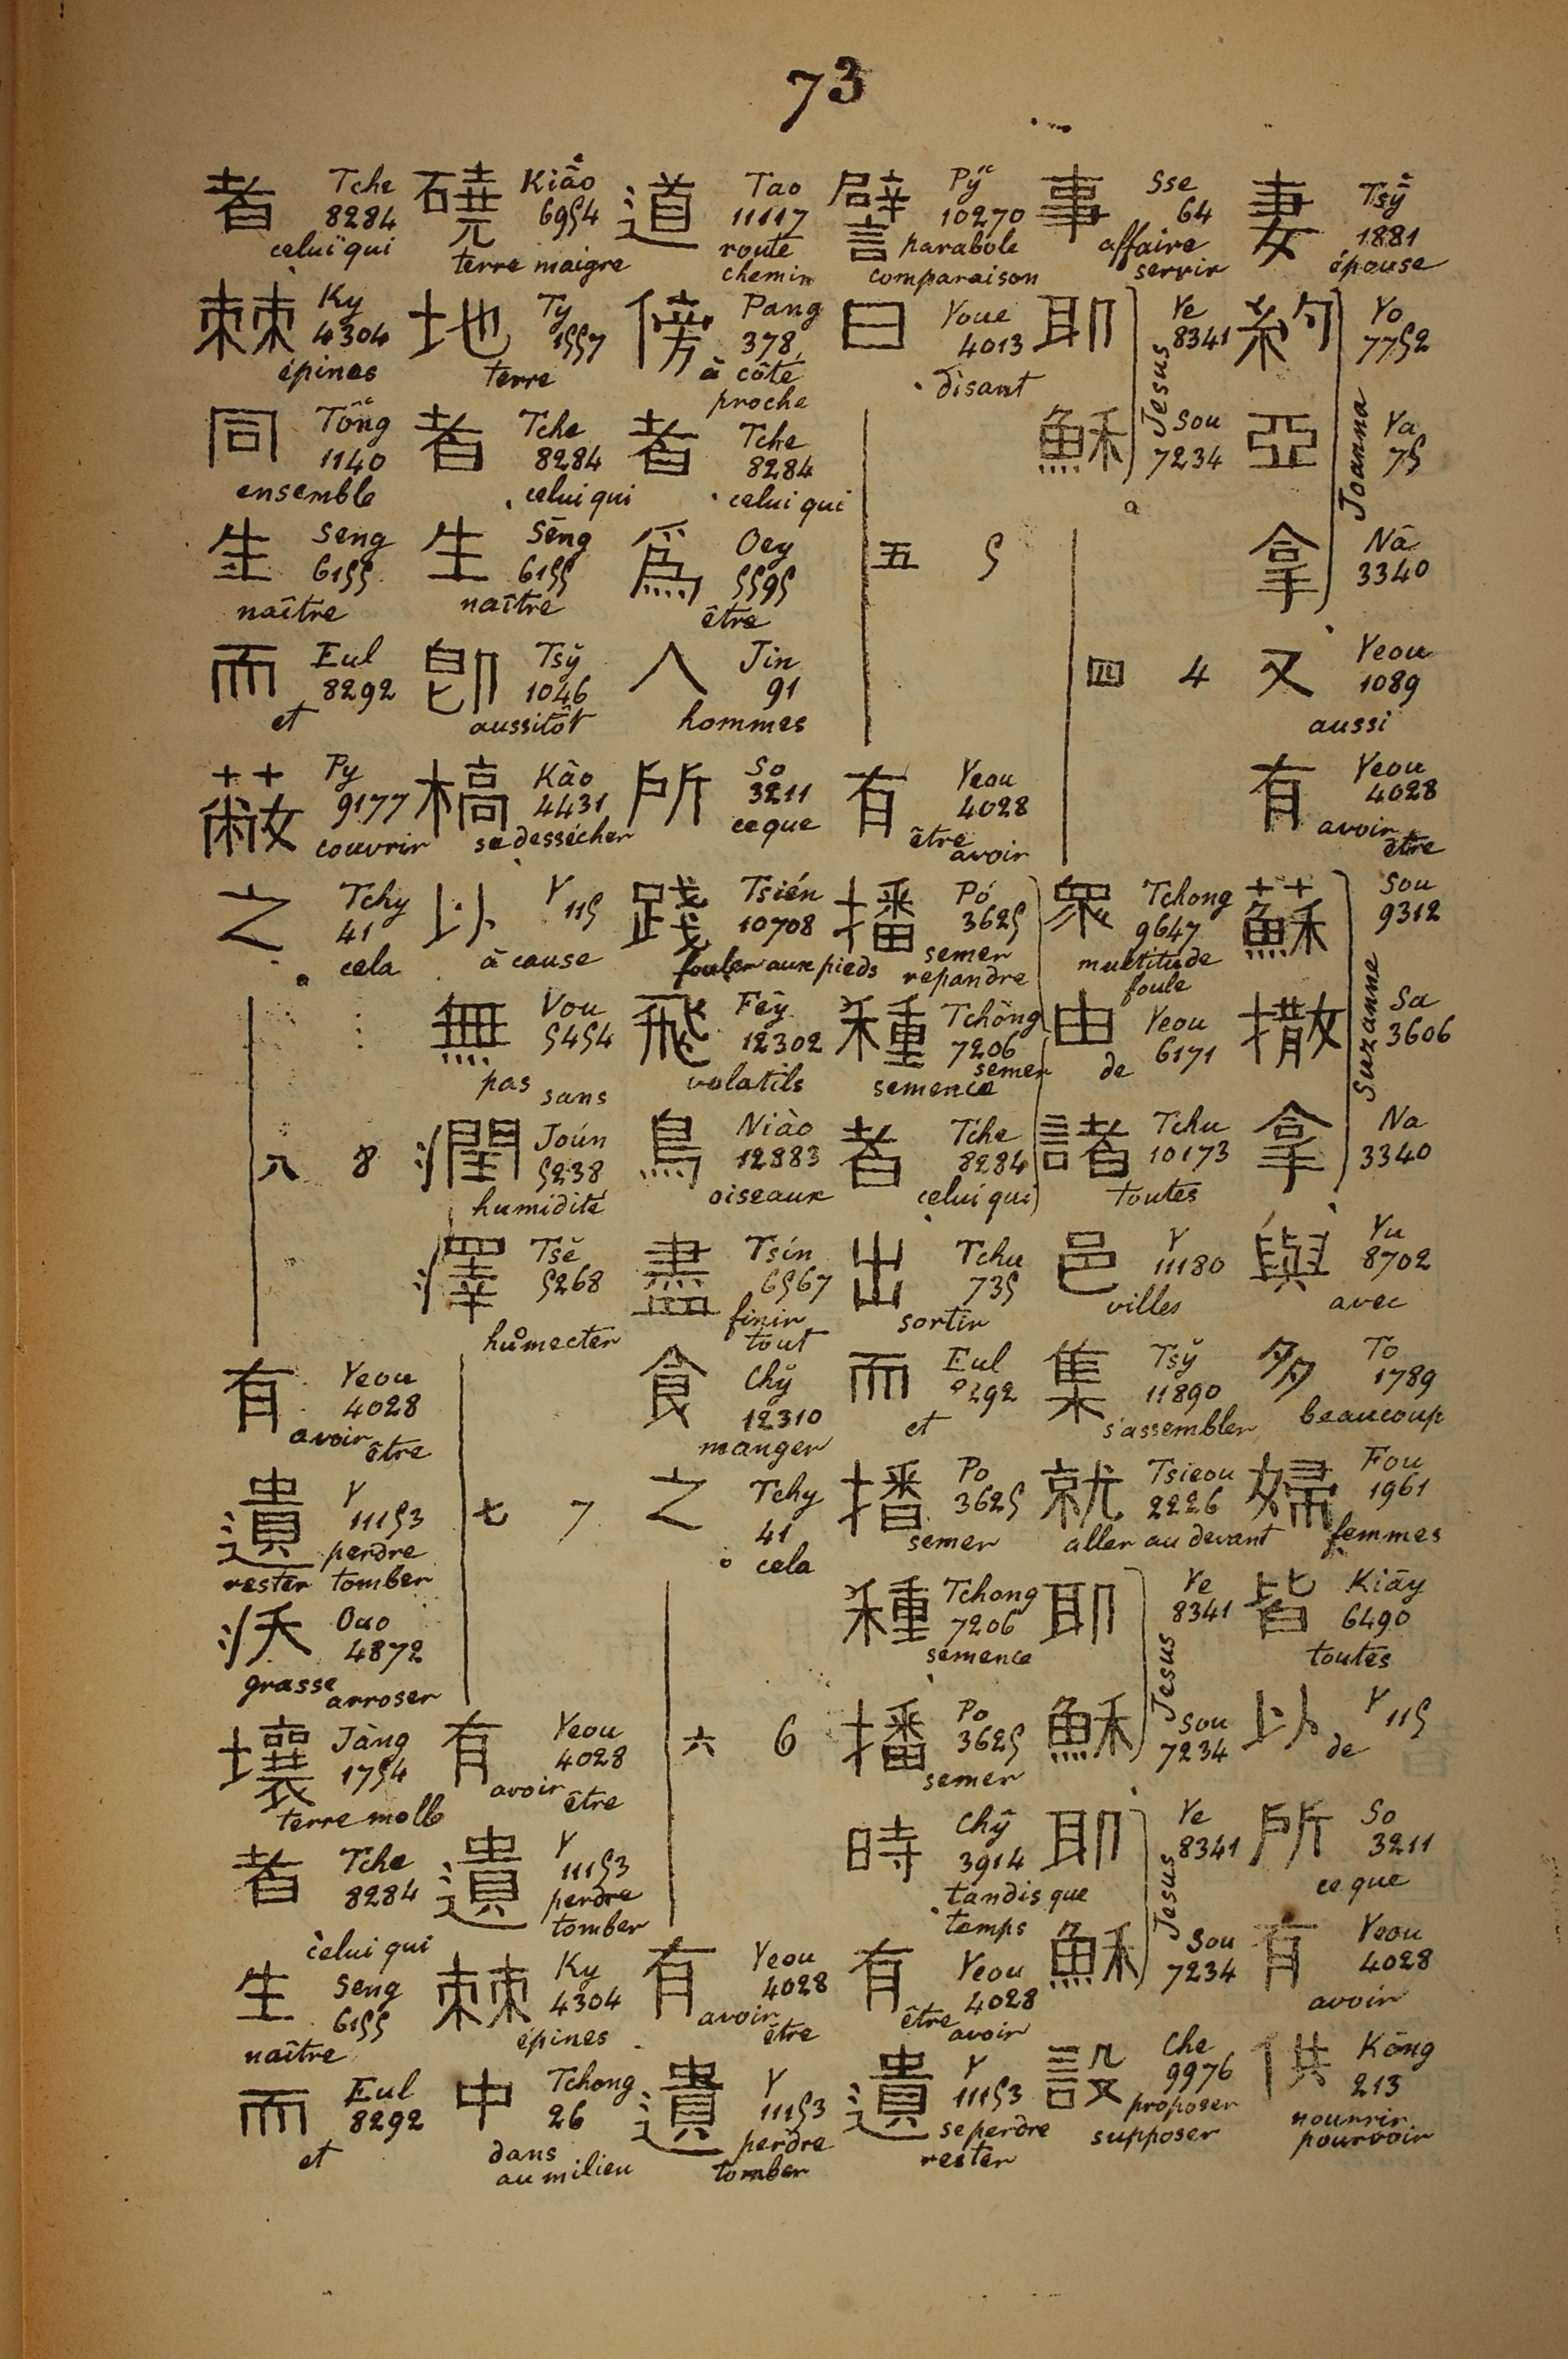 73
妻 Tsy̆ 1881 épouse
約 Yo 7752
亞 Ya 75
拿 Nā 3340
Joanna
又 Yeou 1089 aussi
有 Yeou 4028 avoir être
蘇 Sou 9312
撒 Sa 3606
拿 Na 3340
Suzanne
與 Yu 8702 avec
多 To 1789 beaucoup
婦 Fou 1961 femmes
皆 Kiāy 6490 toutes
以 Y 115 de
所 So 3211 ce que
有 Yeou 4028 avoir
供 Kōng 213 nourrir pourvoir
事 Sse 64 affaire servir
耶 Ye 8341
穌 Sou 7234
Jesus
四 4
眾 Tchong 9647 multitude foule
由 Yeou 6171 de
諸 Tchu 10173 toutes
邑 Y 11180 villes
集 Tsy̆ 11890 s'assembler
就 Tsieou 2226 aller au devant
耶 Ye 8341
穌 Sou 7234
Jesus
耶 Ye 8341
穌 Sou 7234
Jesus
設 Che 9976 proposer supposer
譬 Py̆ 10270 parabole comparaison
曰 Youe 4013 disant
五 5
有 Yeou 4028 être avoir
播 Pó 3625 semer repandre
種 Tchòng 7206 semer semence
者 Tche 8284 celui qui
出 Tchu 735 sortir
而 Eul 8292 et
播 Po 3625 semer
種 Tchong 7206 semence
播 Po 3625 semer
時 Chȳ 3914 tandis que temps
有 Yeou 4028 être avoir
遺 Y 11153 se perdre rester
道 Tao 11117 route chemin
傍 Pang 378 à côté proche
者 Tche 8284 celui qui
為 Oey 5595 être
人 Jin 91 hommes
所 So 3211 ce que
踐 Tsién 10708 fouler aux pieds
飛 Fēy 12302 volatils
鳥 Niào 12883 oiseaux
盡 Tsín 6567 finir tout
食 Chy̆ 12310 manger
之 Tchy 41 cela
六 6
有 Yeou 4028 avoir être
遺 Y 11153 perdre tomber
磽 Kiāo 6954 terre maigre
地 Ty 1557 terre
者 Tche 8284 celui qui
生 Sēng 6155 naître
即 Tsy̆ 1046 aussitôt
槁 Kào 4431 se dessécher
以 Y 115 à cause
無 Vou 5454 pas sans
潤 Joún 5238 humidité
澤 Tsě 5268 humecter
七 7
有 Yeou 4028 avoir être
遺 Y 11153 perdre tomber
棘 Ky 4304 épines
中 Tchong 26 dans au milieu
者 Tche 8284 celui qui
棘 Ky 4304 épines
同 Tông 1140 ensemble
生 Seng 6155 naître
而 Eul 8292 et
蔽 Py 9177 couvrir
之 Tchy 41 cela
八 8
有 Yeou 4028 avoir être
遺 Y 11153 perdre rester tomber
沃 Ouo 4872 grasse arroser
壤 Jàng 1754 terre molle
者 Tche 8284 celui qui
生 Seng 6155 naître
而 Eul 8292 et